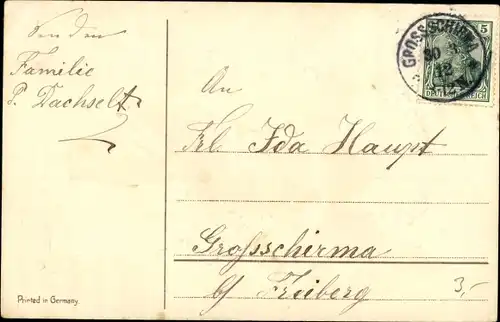 Von den
Familie
P. Dachselt
Printed in Germany.
An
Frl. Ida Haupt
Großschirma
b/ Freiberg
3,-
GROSSSCHIRMA
30
12
5
DEUTSCHES REICH